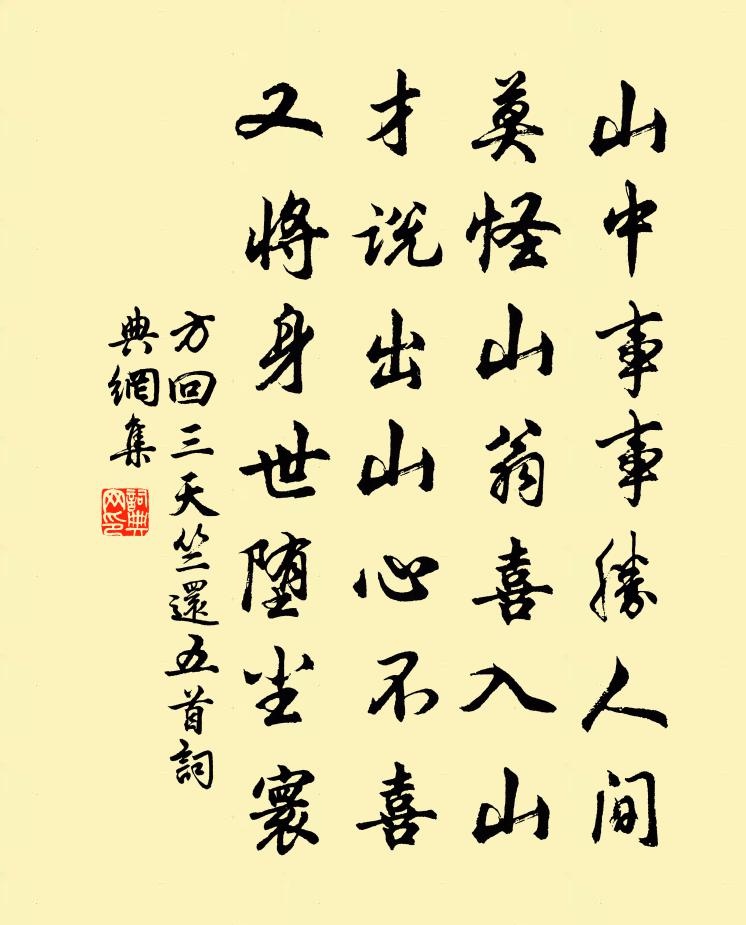 山中事事勝人间
莫怪山翁喜入山
才说出山心不喜
又将身世堕尘寰
方回三天竺還五首詞
典網集
詞典网印